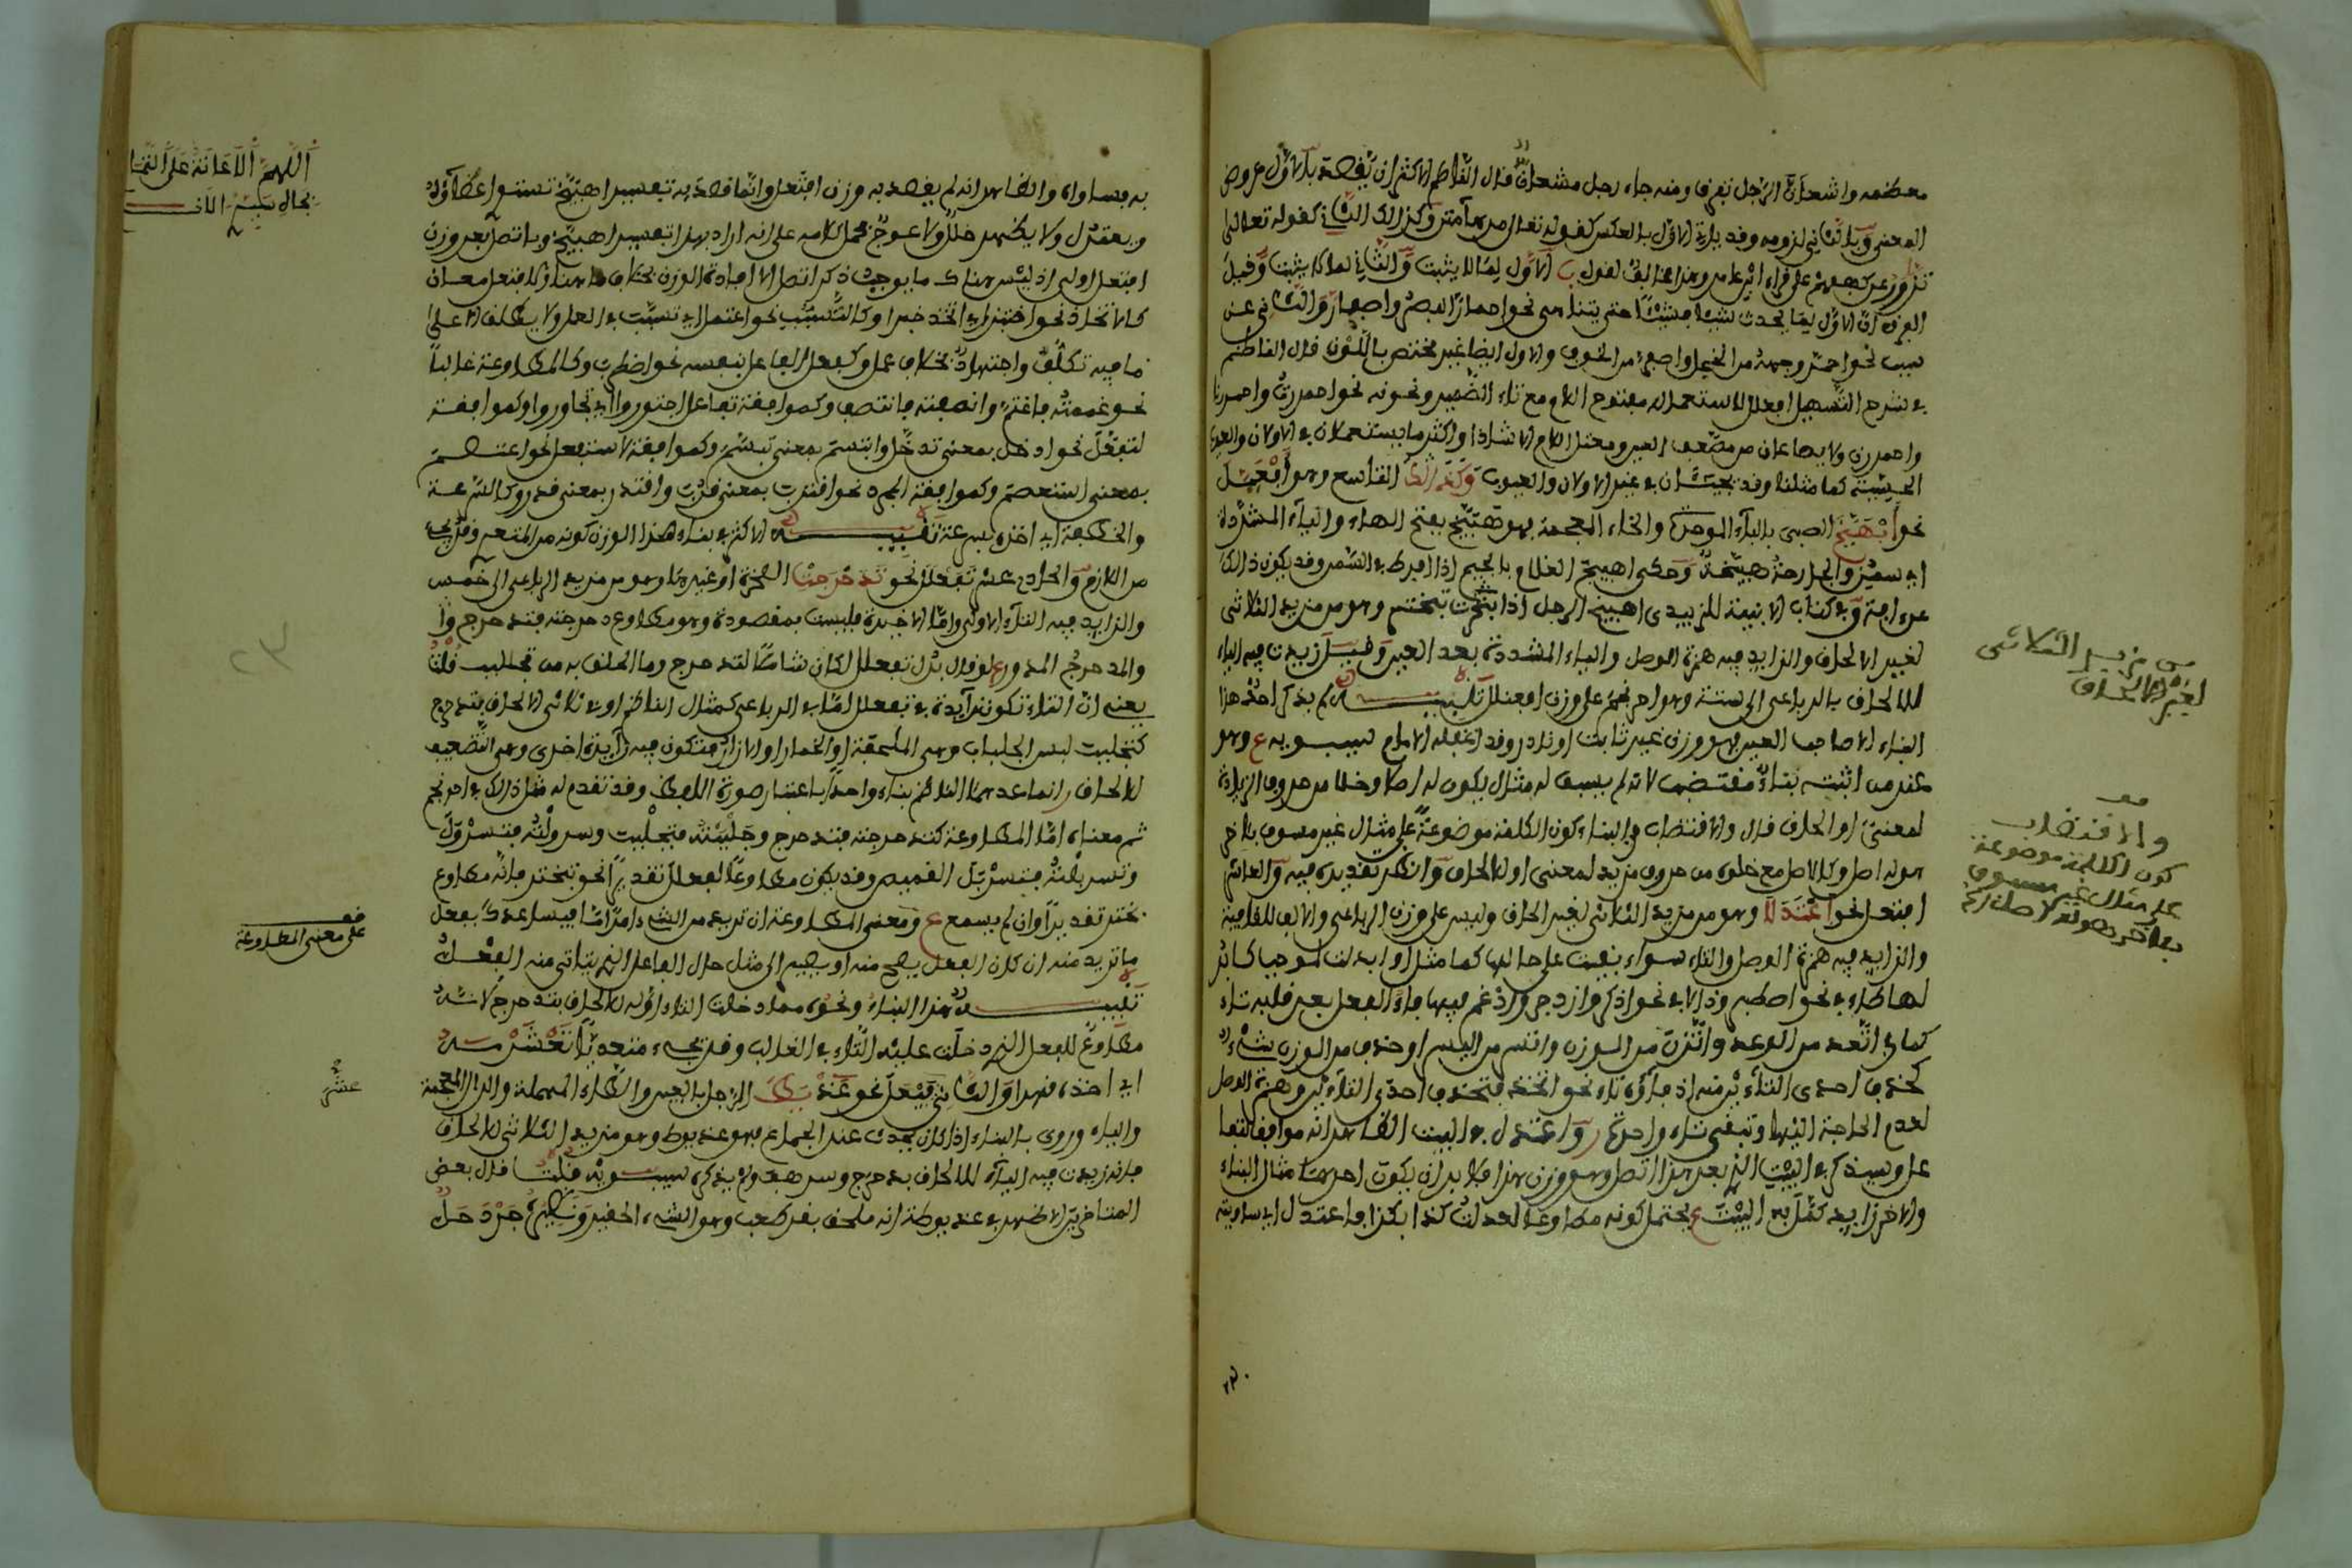 معظمه واشعانّ الرجل تفرق ومنه جاء رجل مشعانّ قال الناظم الاكثر ان يقصد بالاول عروض
المعنى وبالثاني لزومه وقد يراد بالاول بالعكس كقوله تعالى مدهآمتن وكذلك الثاني كقوله تعالى
تزورّ عن كهفهم على قراءة ابن عامر وهذا مخالف لقول الاول لما لا يثبت والثاني لما يثبت وقيل
الفرق ان الاول لما يحدث شيئا فشيئا حتى يتناهى نحو احمارّ البصر واصفارّ والثاني عن
سبب نحو احمرّ وجهه من الخجل واصفرّ من الخوف والاول ايضا غير مختص باللون قال الناظم
في شرح التسهيل افعلل للاستعمال مفتوح اللام مع تاء الضمير ونحوه نحو احمررت واحمررنا
واحمررن ولا يصاغان من مضعف العين ومعتل اللام الا شاذا واكثر ما يستعملان في الالوان والعيوب
الحسية كما مثلنا وقد يجيئان في غير الالوان والعيوب وكذا التاسع وهو افعيّل
نحو اهبيّخ الصبي بالباء الموحدة والخاء المعجمة فهو مهبيّخ بفتح الهاء والياء المشددة
اي سمين والجارية هبيّخة وحكى اهبيّج الغلام بالجيم اذا افرط في السمن وقد يكون ذلك
عن ابنية وفي كتاب الابنية للزبيدي اهبيّخ الرجل اذا تبختر وهو من مزيد الثلاثي
لغير الالحاق والزايد فيه همزة الوصل والياء المشددة بعد العين وقيل زيدت فيه الياء
للالحاق بالرباعي الى ستة وهو احرنجم على وزن افعنلل تنبيه لم يذكر احد هذا
البناء الا صاحب العين فهو وزن غير ثابت او نادر وقد اغفله الامام سيبويه وهو
عند من اثبته بناء مقتضب لانه لم يسبق له مثال يكون له اصلا وخلا من حروف الزيادة
لمعنى او الحاق قال والاقتضاب في البناء كون الكلمة موضوعة على مثال غير مسبوق باخر
هو له اصل وكالاصل مع خلوه من حروف مزيد لمعنى او لالحاق وانظر تقديره فيه والعاشر
افتعل نحو اعتدلا وهو من مزيد الثلاثي لغير الحاق وليس على وزن الرباعي والالف للقافية
والزايد فيه همزة الوصل والتاء سواء بقيت على حالها كما مثل او ابدلت لموجب كابدالها
لها طاء في نحو اصطبر ودالا في نحو اذكر وازدجر وادغم فيها فاء الفعل بعد قلبه تاء
كما في اتّعد من الوعد واتّزن من الوزن واتّسر من اليسر او حذف من الوزن شيء
كحذف احدى التاءين منه اذ فاؤه تاء نحو اتخذ فتحذف احدى التاءين وهمزة الوصل
لعدم الحاجة اليها وتبقى تاء واحدة واعتدل في البيت الظاهر انه موافق لتفا
عل وسيذكر في البيت الذي بعد هذا اتصل وهو وزن هذا فلا بد ان يكون احدهما مثال البناء
والاخر زايد كمّل به البيت يحتمل كونه مطاوعا لعدلت كذا بكذا فاعتدل اي ساويته
من مزيد الثلاثي
لغير الالحاق
قف
والاقتضاب
كون الكلمة موضوعة
على مثال غير مسبوق
باخر هو له كالاصل
به فساواه والظاهر انه لم يقصد به وزن افتعل وانما قصد به تفسير اهبيّخ تستوي اعضاؤه
وتعتدل ولا يظهر خلل ولا عوج فحمل كلامه على انه اراد بهذا تفسير اهبيّخ وباتصل بعد وزن
افتعل اولى اذ ليس هناك ما يوجب ذكر اتصل الا افادة الوزن بخلاف ما هنا ولافتعل معان
كالاتخاذ نحو اختبز اي اتخذ خبزا وكالتسبّب نحو اعتمل اي تسبّب في العمل ولا يطلق الا على
ما فيه تكلّف واجتهاد بخلاف عمل وكفعل الفاعل بنفسه نحو اضطرب وكالمطاوعة غالبا
نحو غممته فاغتمّ وانصفته فانتصف وكموافقة تفاعل اجتوروا اي تجاوروا وكموافقة
لتفعّل نحو ادخل بمعنى تدخّل وابتسم بمعنى تبسّم وكموافقة لاستفعل نحو اعتصم
بمعنى استعصم وكموافقة المجرد نحو اقترب بمعنى قرب واقتدر بمعنى قدر وكالسرعة
والخطفة اي اخذه بسرعة تنبيه الاكثر في بناء هذا الوزن كونه من المتعدي وقد يجيء
من اللازم والحادي عشر تفعلل نحو تدحرجت الصخرة او غيرها وهو من مزيد الرباعي الى خمسة
والزايد فيه التاء الاولى واما الاخيرة فليست بمقصودة وهو مطاوع دحرجته فتدحرج وا
والمدحرج المدور ولو قال بدل تفعلل لكان شاملا لتدحرج وما الحق به من تجلبب قلت
يعني ان التاء تكون زايدة في تفعلل اما في الرباعي كمثال الناظم او في ثلاثي لالحاق بتدحرج
كتجلببت لبس الجلباب وهي الملحفة او الخمار او الازار فتكون فيه زايدة اخرى وهي التضعيف
لالحاق وانما عدهما الناظم بناء واحدا باعتبار صورة اللفظ وقد تقدم له مثل ذلك في احرنجم
ثم معناه اما المطاوعة كتدحرجته فتدحرج وجلببته فتجلبب وسرولته فتسرول
وتسربلته فتسربل القميص وقد يكون مطاوعا لفعلل تقديرا نحو تبختر فانه مطاوع
بختر تقديرا وان لم يسمع ومعنى المطاوعة ان تريد من الشيء امرا ما فيساعدك بفعل
ما تريد منه ان كان الفعل يصح منه او يصير الى مثل حال الفاعل الذي يتأتى منه الفعل
تنبيه هذا البناء ونحوه مما دخلت التاء اوله لالحاق بتدحرج لانه
مطاوع للفعل الذي دخلت عليه التاء في الغالب وقد يجيء متعديا تغشرمه
اي اخذه قهرا والثاني فعيل نحو عذيط الرجل بالعين والطاء المهملة والذال المعجمة
والياء وروي بالباء اذا كان يحدث عند الجماع فهو عذيوط وهو مزيد الثلاثي لالحاق
فانه زيدت فيه الياء للالحاق بدحرج وسرهف ولم يذكره سيبويه قلت قال بعض
المتاخرين الاظهر في عذيوط انه ملحق بقرطعب وهو الشيء الحقير ونظيره جردحل
اللهم الاعانة على التمام
بجاه سيد الانام
قف
على معنى المطاوعة
عشر